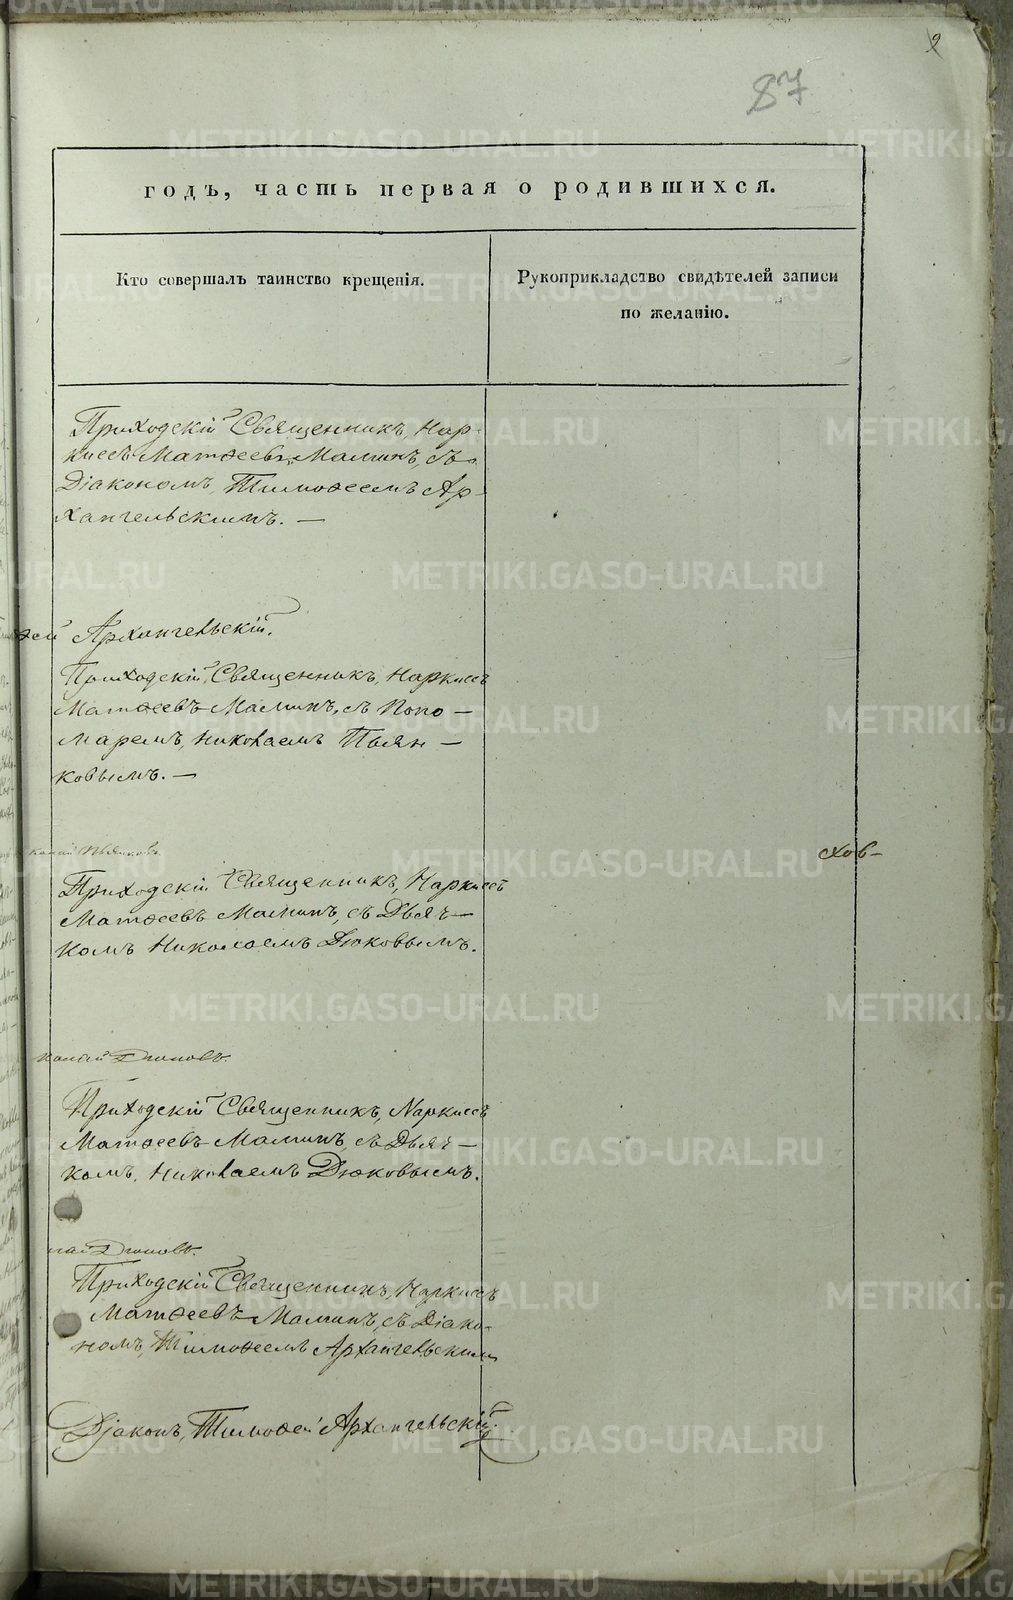 9
87
годъ, часть первая о родившихся.
Кто совершалъ таинство крещенія.
Рукоприкладство свидѣтелей записи
по желанію.
Приходскій Священникъ, Нар-
киссъ Матѳеевъ Маминъ, съ
Діакономъ, Тимоѳеемъ Ар-
хангельскимъ. —
ѳей Архангельскій.
Приходскій Священникъ, Наркиссъ
Матѳеевъ Маминъ, съ Поно —
маремъ, Николаемъ Пьян —
ковымъ. —
колай Пьянковъ.
хов-
Приходскій Священникъ, Наркиссъ
Матѳеевъ Маминъ, съ Дьяч —
комъ Николаемъ Дюковымъ.
колай Дюковъ.
Приходскій Священникъ, Наркиссъ
Матѳеевъ Маминъ, съ Дьяч —
комъ, Николаемъ Дюковымъ.
лай Дюковъ.
Приходскій Священникъ, Наркиссъ
Матѳеевъ Маминъ, съ Діако-
номъ, Тимоѳеемъ Архангельскимъ
Діаконъ, Тимоѳей Архангельскій.
METRIKI.GASO-URAL.RU